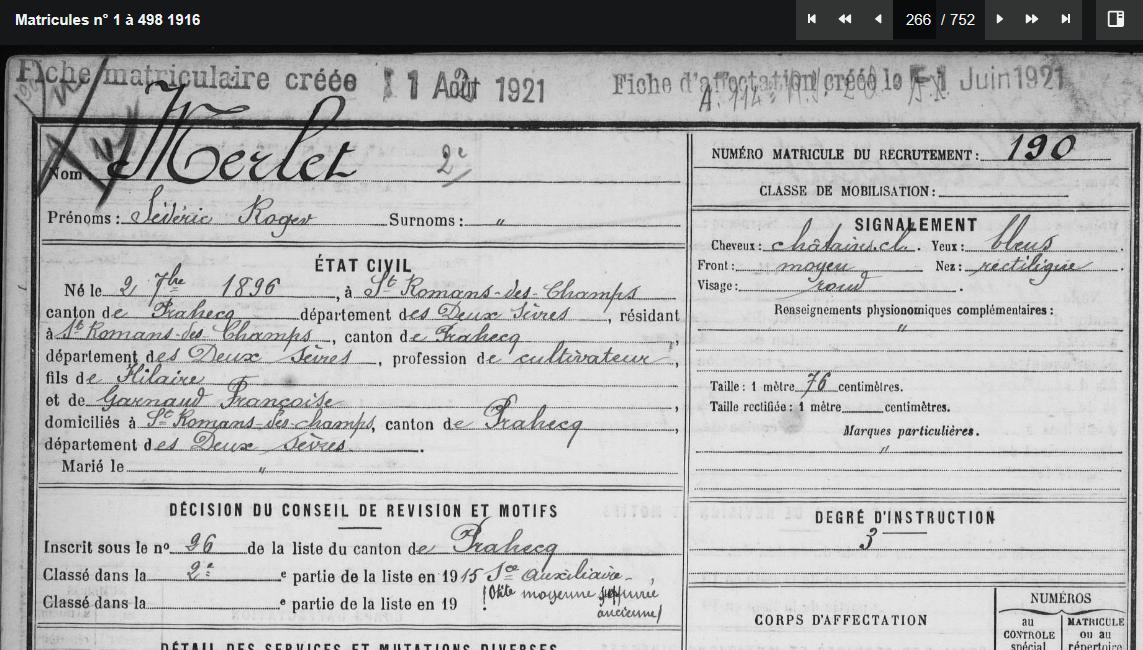 Matricules n° 1 à 498 1916
266 / 752
Fiche matriculaire créée 1 Août 1921
Fiche d'affectation créée le 1 Juin 1921
Nom Merlet 2e
NUMÉRO MATRICULE DU RECRUTEMENT : 190
CLASSE DE MOBILISATION :
Prénoms : Roger Surnoms : "
SIGNALEMENT
Cheveux : châtains cl. Yeux : bleus
Front : moyen Nez : rectiligne
Visage : rond
Renseignements physionomiques complémentaires :
"
Taille : 1 mètre 76 centimètres.
Taille rectifiée : 1 mètre centimètres.
Marques particulières.
"
ÉTAT CIVIL
Né le 2 7bre 1896, à St Romans-des-Champs
canton de Prahecq département des Deux Sèvres, résidant
à St Romans-des Champs, canton de Prahecq,
département des Deux Sèvres, profession de cultivateur,
fils de Hilaire
et de Garnaud Françoise,
domiciliés à St Romans-des-champs, canton de Prahecq,
département des Deux Sèvres.
Marié le "
DÉCISION DU CONSEIL DE REVISION ET MOTIFS
Inscrit sous le no 26 de la liste du canton de Prahecq
Classé dans la 2e e partie de la liste en 1915 Sce auxiliaire,
Classé dans la e partie de la liste en 19 (Otite moyenne ancienne)
DEGRÉ D'INSTRUCTION
3
CORPS D'AFFECTATION
NUMÉROS
au CONTROLE spécial
MATRICULE ou au répertoire
DÉTAIL DES SERVICES ET MUTATIONS DIVERSES